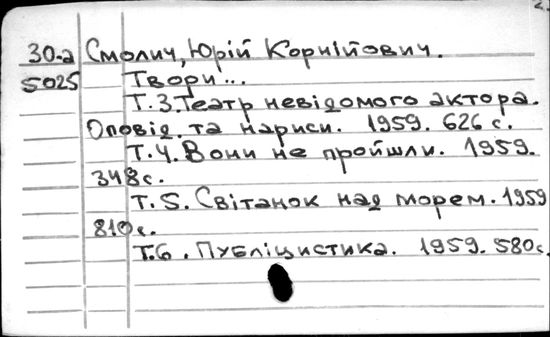 2.
30-а Смолич, Юрій Корнійович.
5025 Твори...
Т.3. Театр невідомого актора.
Оповід. та нариси. 1959. 626 с.
Т.4. Вони не пройшли. 1959.
348 с.
Т.5. Світанок над морем. 1959
810 с.
Т.6. Публіцистика. 1959. 580 с.